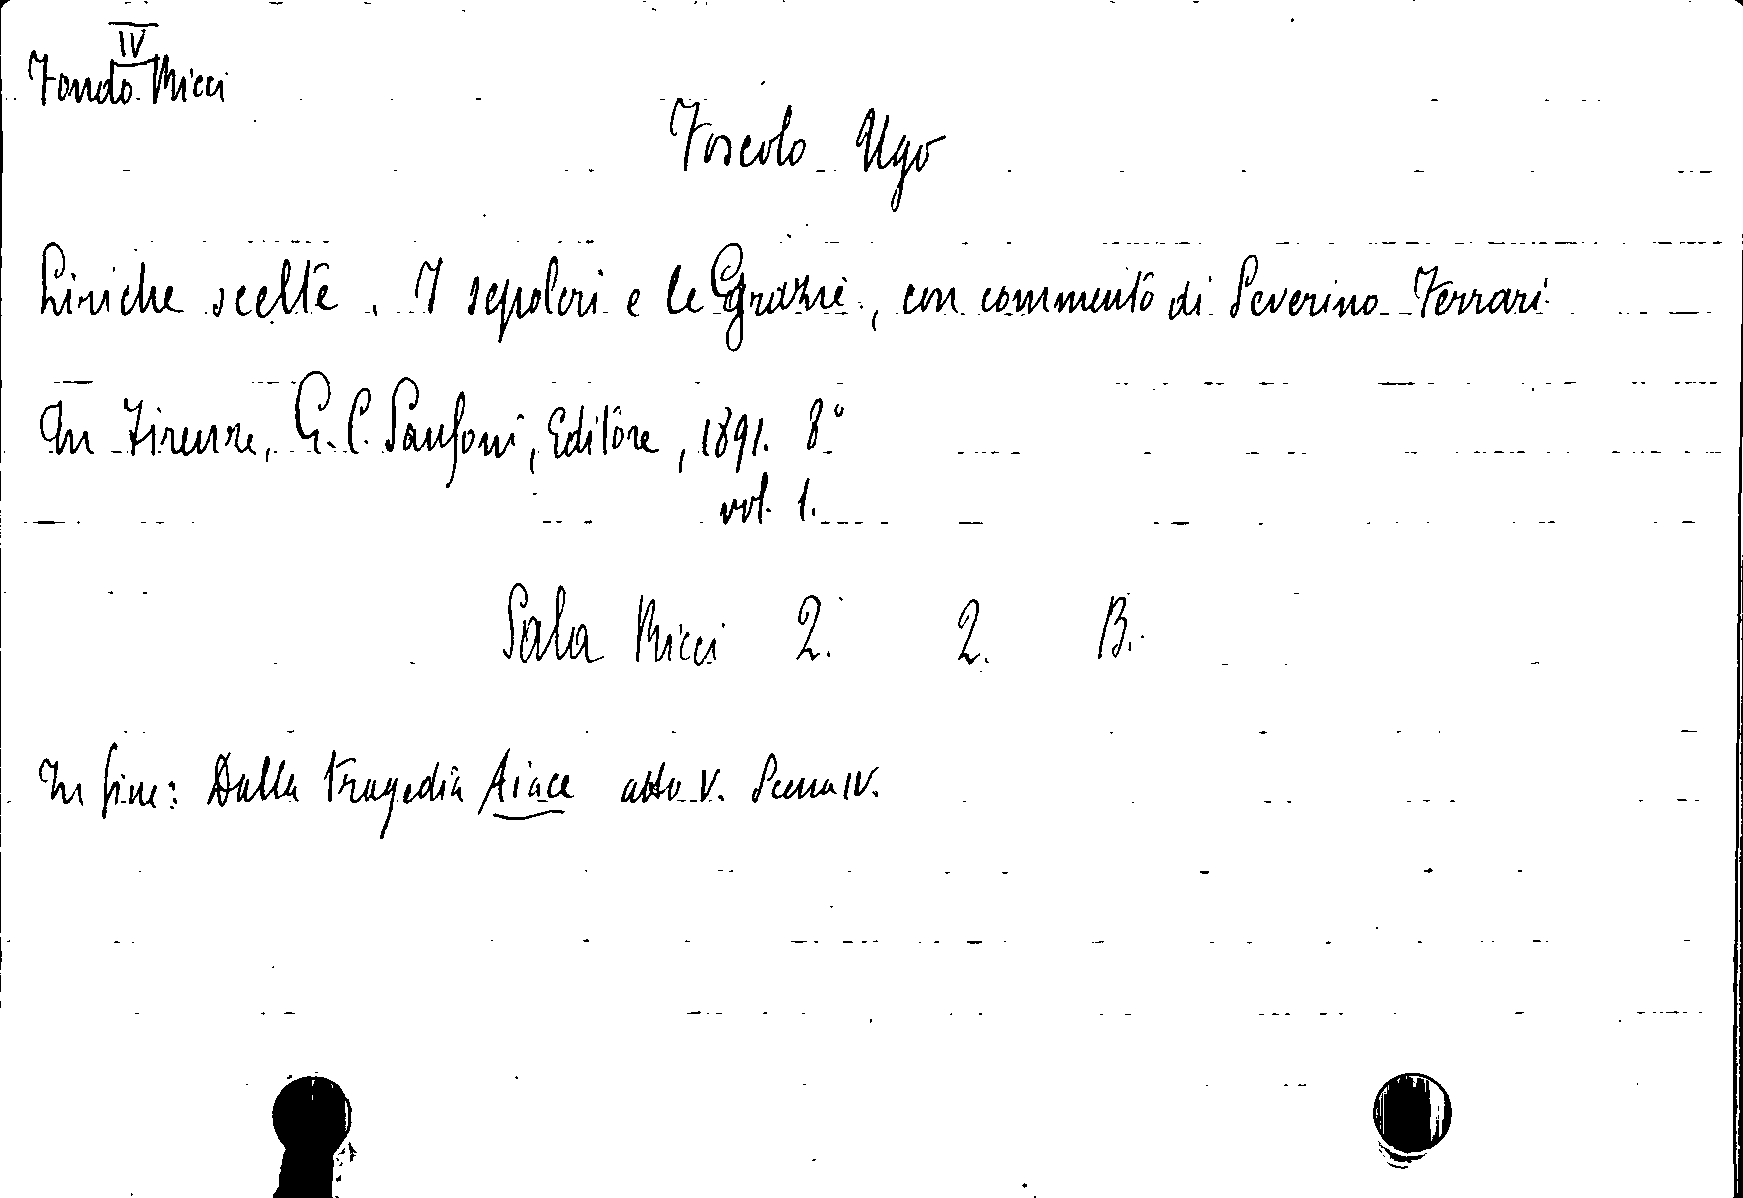 IV
Fondo Ricci
Foscolo Ugo
Liriche scelte. I sepolcri e le Grazie, con commento di Severino Ferrari
In Firenze, G. C. Sansoni, Editore, 1891. 8°
vol. 1.
Sala Ricci 2. 2. B.
In fine: Dalla tragedia Aiace atto V. Scena IV.